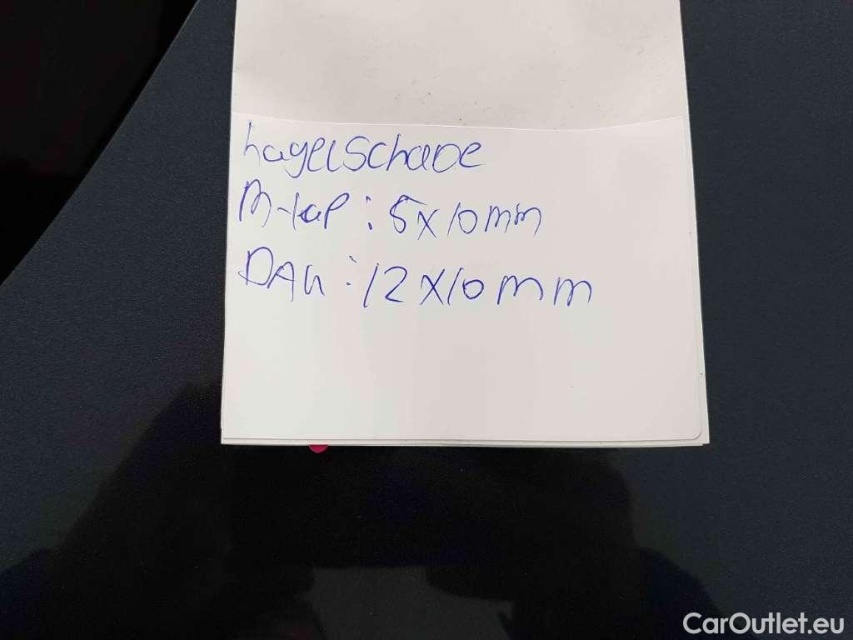 hagelschade
M-kap : 5x10mm
DAK : 12x10mm
CarOutlet.eu